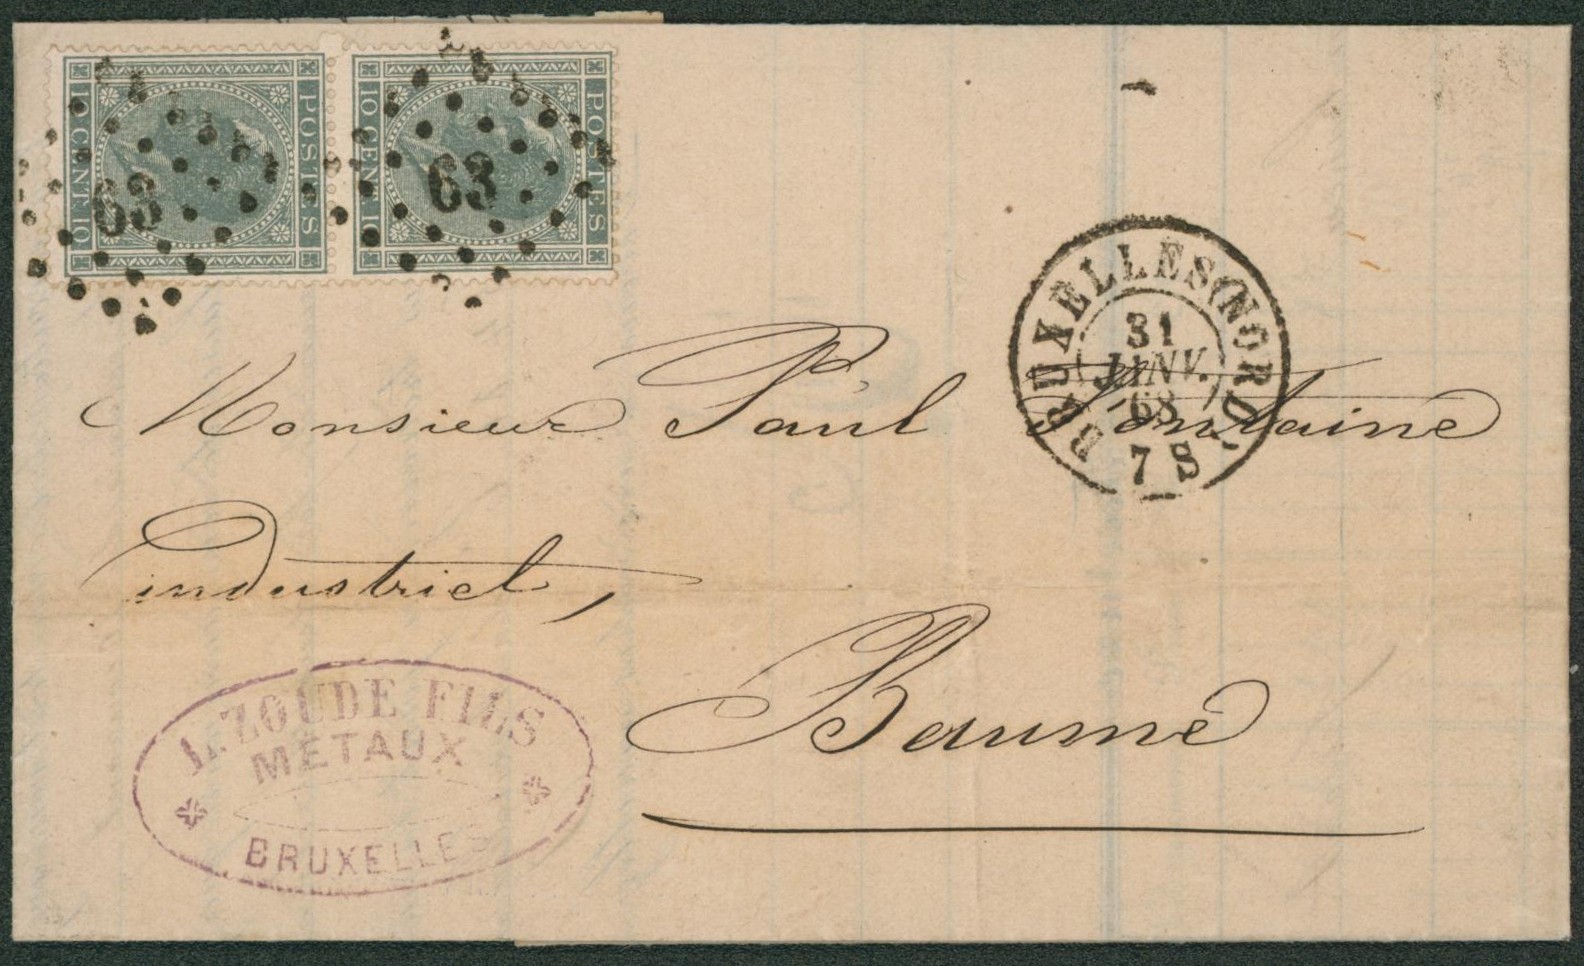 POSTES
10 CENT. 10
63
POSTES
10 CENT. 10
63
BRUXELLES (NORD)
31
JANV.
68
7 S
Monsieur Paul Fontaine
industriel,
Baume
L. ZOUDE FILS
METAUX
BRUXELLES